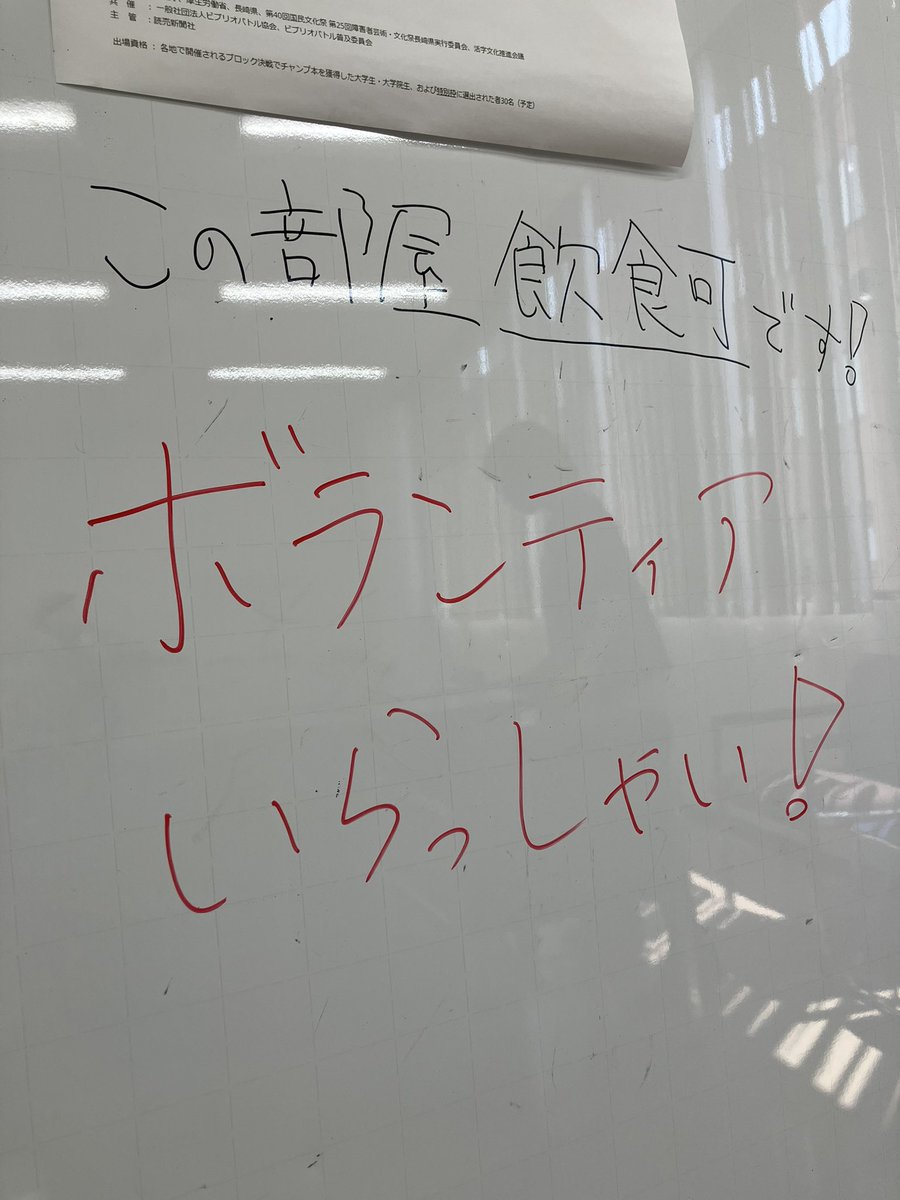 厚生労働省、長崎県、第40回国民文化祭 第25回障害者芸術・文化祭長崎県実行委員会、活字文化推進会議
共 催 : 一般社団法人ビブリオバトル協会、ビブリオバトル普及委員会
主 管 : 読売新聞社
出場資格 : 各地で開催されるブロック決戦でチャンプ本を獲得した大学生・大学院生、および特別枠に選出された者30名(予定)
この部屋 飲食可です!
ボランティア
いらっしゃい!